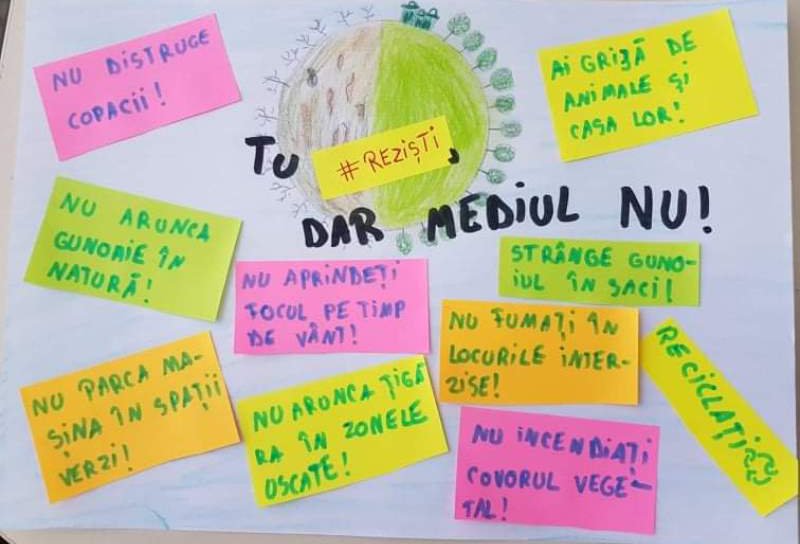 NU DISTRUGE
COPACII!
AI GRIJĂ DE
ANIMALE ȘI
CASA LOR!
TU #REZIȘTI,
DAR MEDIUL NU!
NU ARUNCA
GUNOAIE ÎN
NATURĂ!
NU APRINDEȚI
FOCUL PE TIMP
DE VÂNT!
STRÂNGE GUNO-
IUL ÎN SACI!
NU FUMAȚI ÎN
LOCURILE INTER-
ZISE!
RECICLAȚI
NU PARCA MA-
ȘINA ÎN SPAȚII
VERZI!
NU ARUNCA ȚIGA
RA ÎN ZONELE
USCATE!
NU INCENDIAȚI
COVORUL VEGE-
TAL!